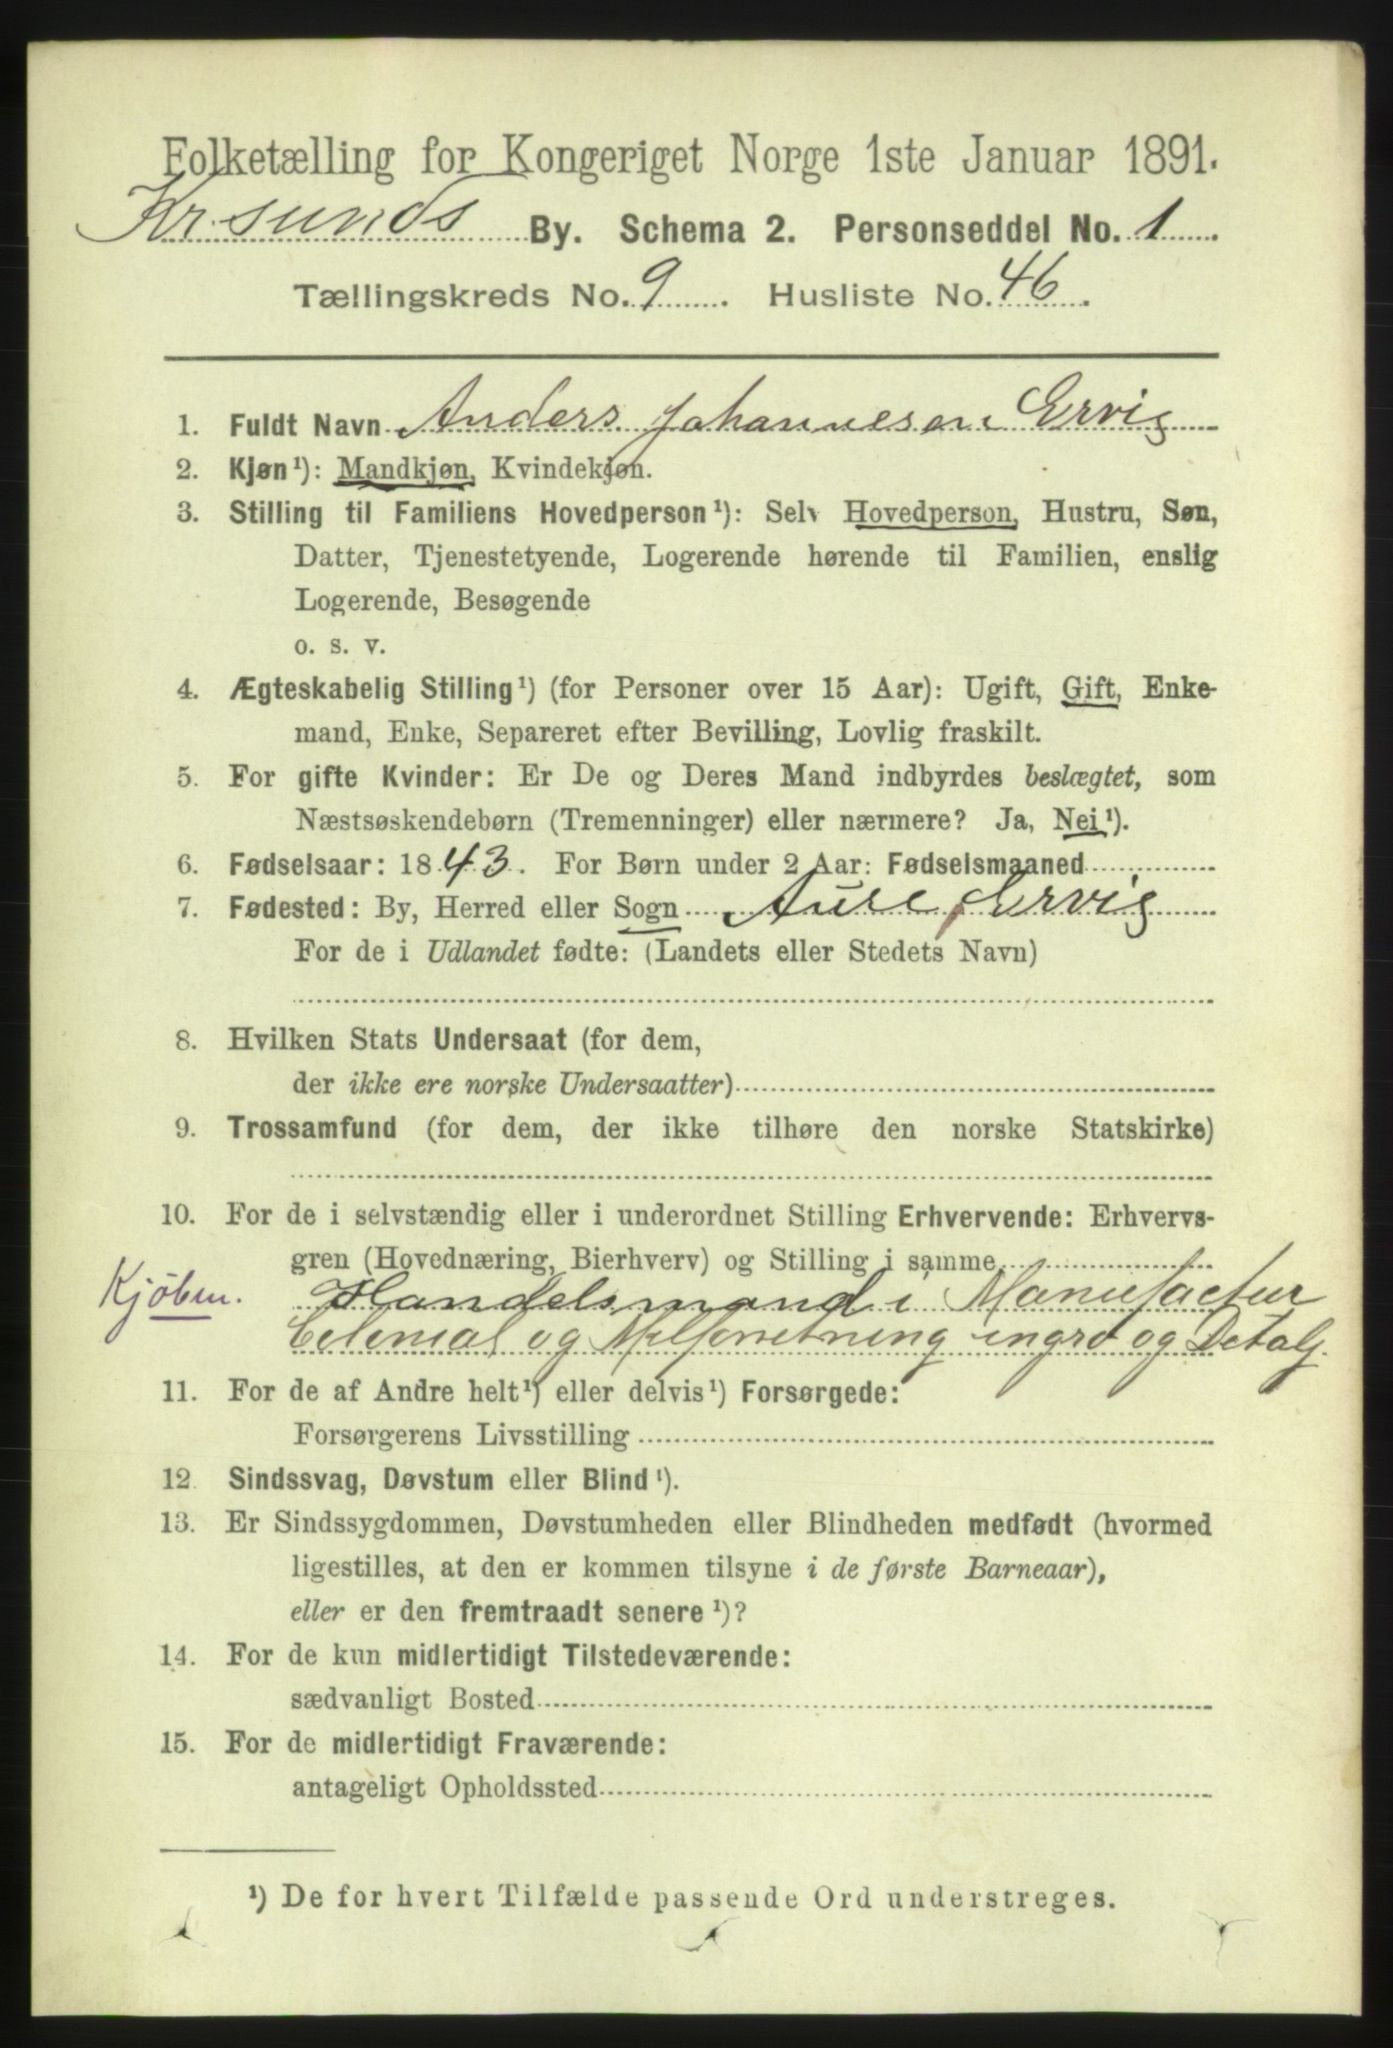 Folketælling for Kongeriget Norge 1ste Januar 1891.
Kr.sunds By. Schema 2. Personseddel No. 1
Tællingskreds No. 9. Husliste No. 46.
1. Fuldt Navn Anders Johannesen Ervig
2. Kjøn¹): Mandkjøn, Kvindekjøn.
3. Stilling til Familiens Hovedperson¹): Selv Hovedperson, Hustru, Søn,
Datter, Tjenestetyende, Logerende hørende til Familien, enslig
Logerende, Besøgende
o. s. v.
4. Ægteskabelig Stilling¹) (for Personer over 15 Aar): Ugift, Gift, Enke-
mand, Enke, Separeret efter Bevilling, Lovlig fraskilt.
5. For gifte Kvinder: Er De og Deres Mand indbyrdes beslægtet, som
Næstsøskendebørn (Tremenninger) eller nærmere? Ja, Nei¹).
6. Fødselsaar: 1843. For Børn under 2 Aar: Fødselsmaaned
7. Fødested: By, Herred eller Sogn Aure, Ervig
For de i Udlandet fødte: (Landets eller Stedets Navn)
8. Hvilken Stats Undersaat (for dem,
der ikke ere norske Undersaatter)
9. Trossamfund (for dem, der ikke tilhøre den norske Statskirke)
10. For de i selvstændig eller i underordnet Stilling Erhvervende: Erhvervs-
gren (Hovednæring, Bierhverv) og Stilling i samme
Kjøbm. Handelsmand i Manufactur
Colonial og Melforretning engro og Detalj.
11. For de af Andre helt¹) eller delvis¹) Forsørgede:
Forsørgerens Livsstilling
12. Sindssvag, Døvstum eller Blind¹).
13. Er Sindssygdommen, Døvstumheden eller Blindheden medfødt (hvormed
ligestilles, at den er kommen tilsyne i de første Barneaar),
eller er den fremtraadt senere¹)?
14. For de kun midlertidigt Tilstedeværende:
sædvanligt Bosted
15. For de midlertidigt Fraværende:
antageligt Opholdssted
¹) De for hvert Tilfælde passende Ord understreges.